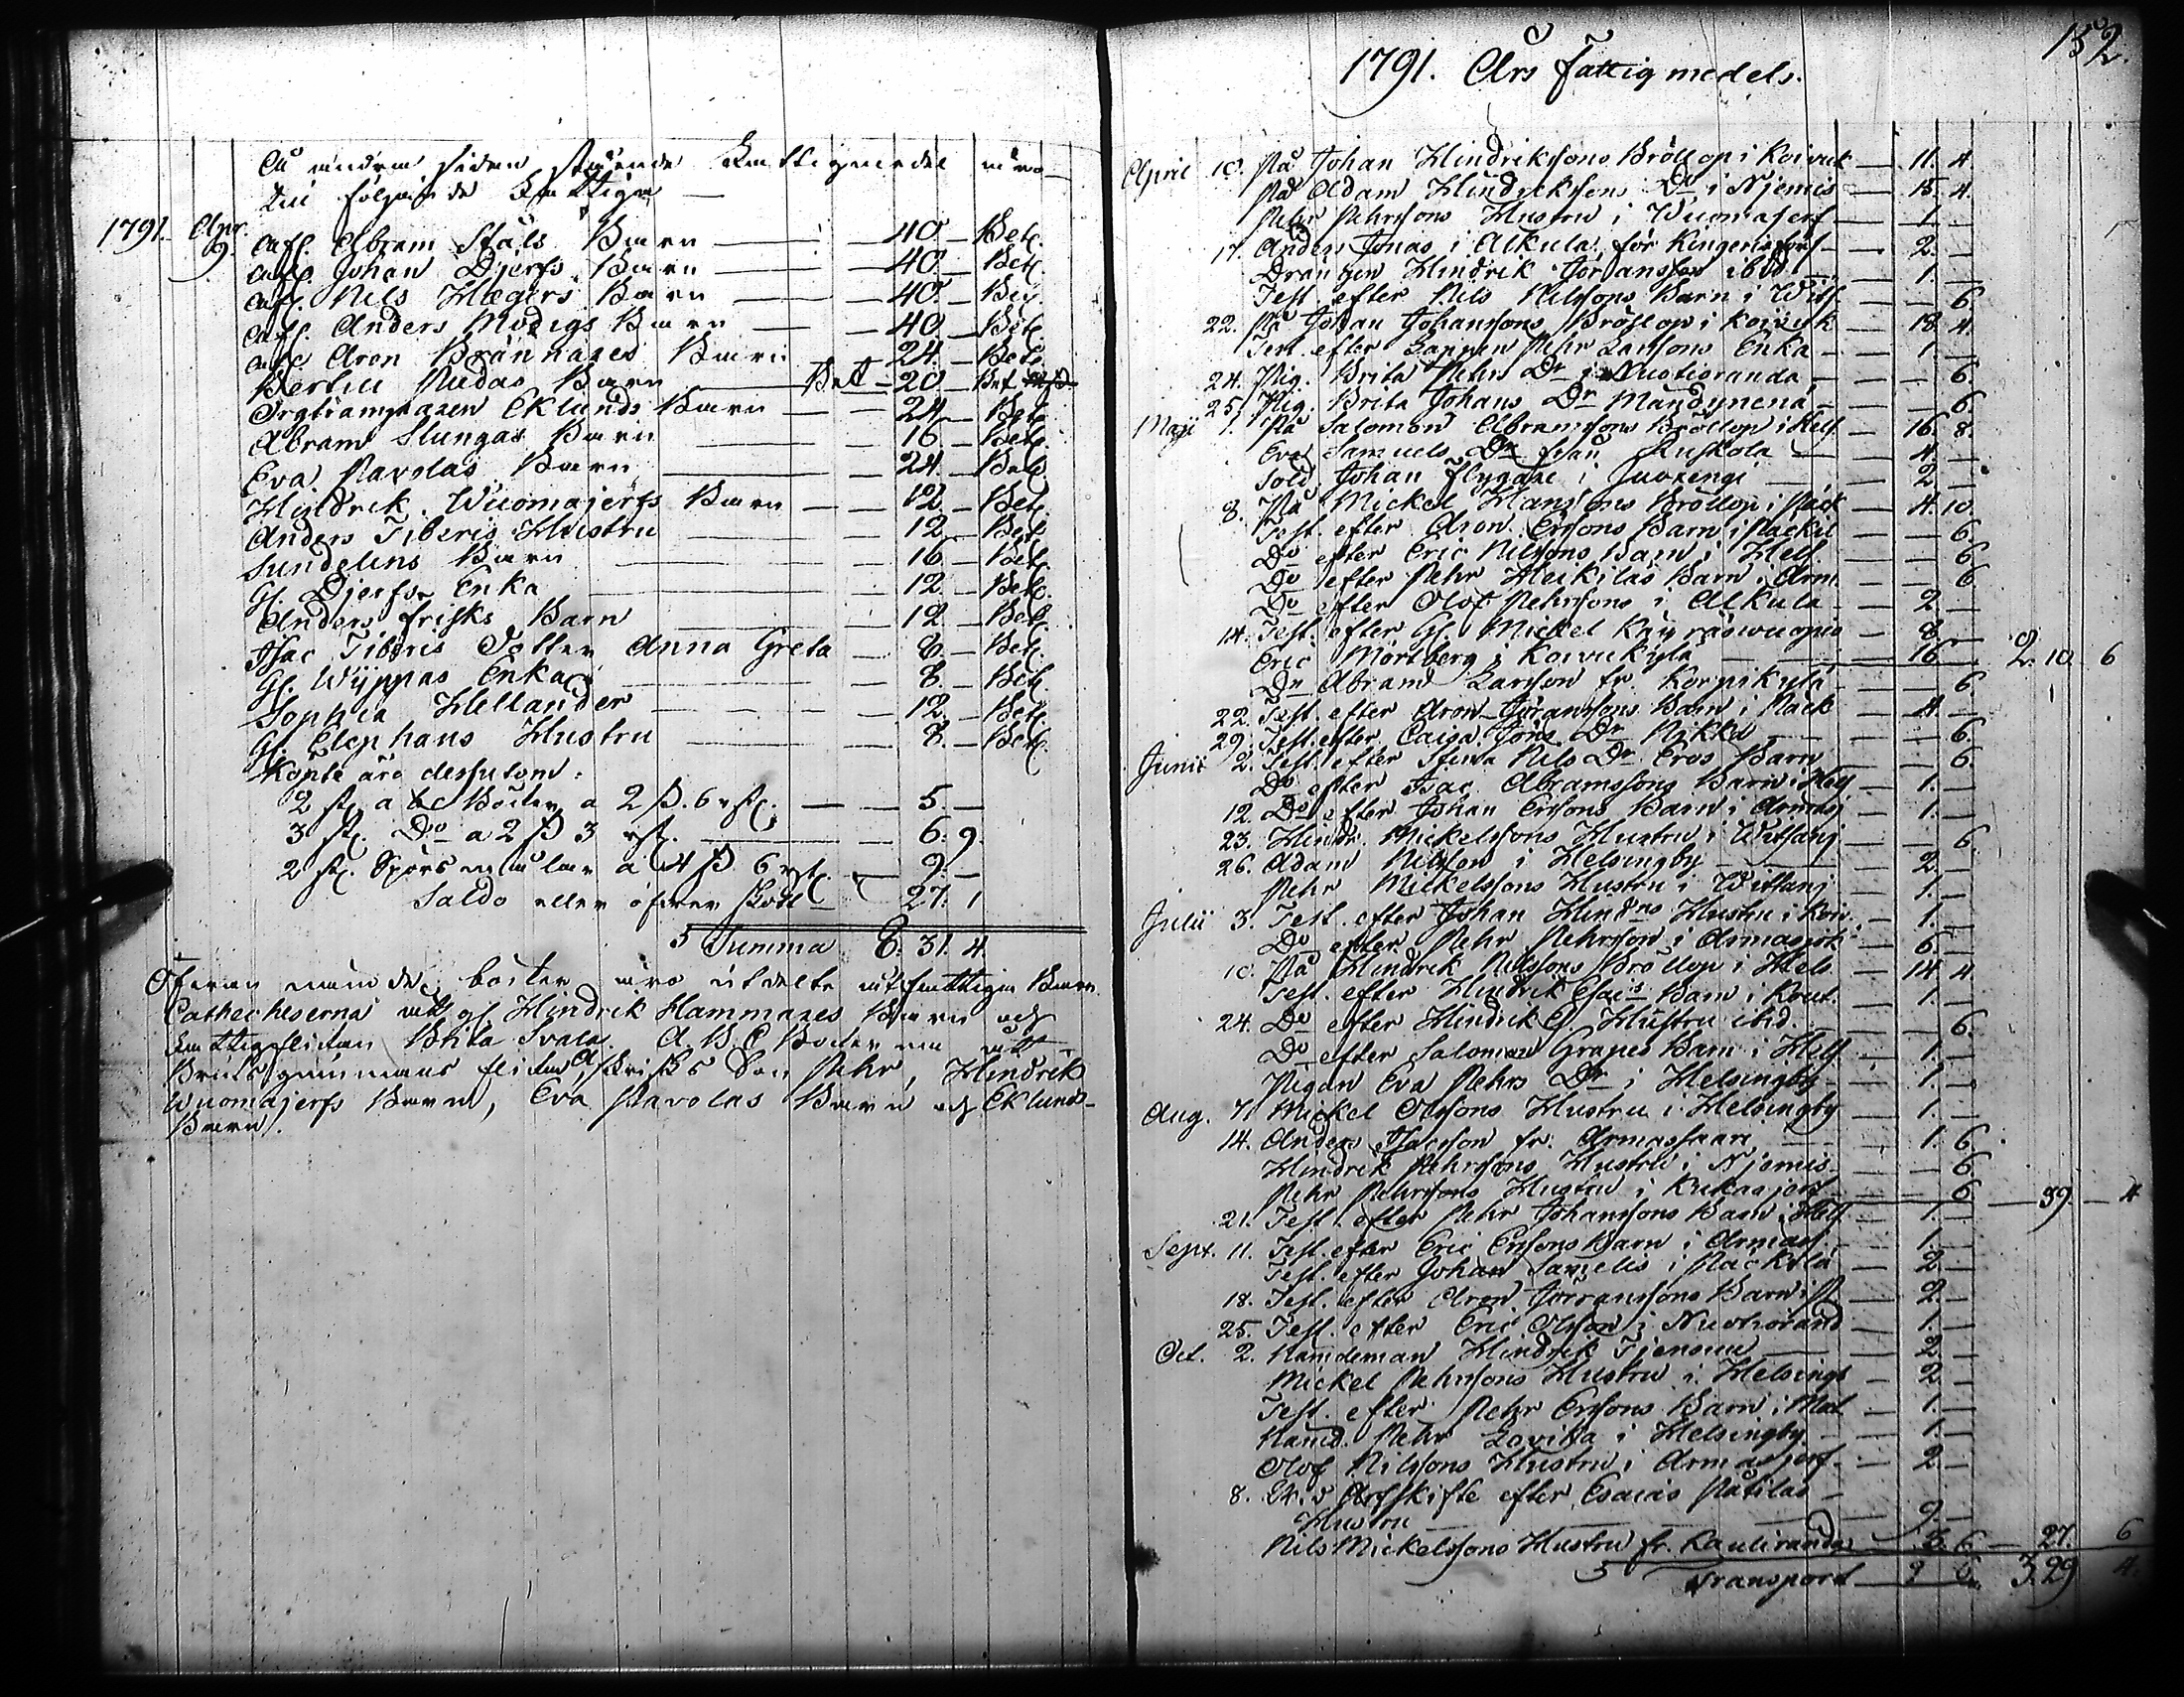 Å andra sidan stående Fattigmedel äro
till följande Fattiga
1791. Apr. 9. Afl. Abram Ståls Barn — 40 — Bet.
Afl. Johan Djerfs Barn — 40 — Bet.
Afl. Nils Hægers Barn — 40 —
Afl. Anders Modigs Barn — 40 — Bet.
Afl. Aron Brännares Barn — 24 — Bet.
Bertill Rudas Barn — Bet — 20 — Bet
Eklunds Barn — 24 — Bet
Abram Slungas Barn — 16 — Bet.
Eva Pavolas Barn — 24 — Bet
Hindrik Wuomajerfs Barn — 12 — Bet.
Anders Tiberis Hustru — 12 — Bet.
Sundelins Barn — 16 — Bet.
Gl. Djerfs Enka — 12 — Bet.
Anders Frisks Barn — 12 — Bet.
Isac Tiberis Dotter Anna Greta — 8 — Bet.
Gl. Wyppas Enka — 8 — Bet.
Sophia Hellander — 12 — Bet.
Gl. Elephans Hustru — 8 — Bet.
Köpte äro dessutom:
2 st. a b c Böcker a 2 ß. 6 rst. — 5 —
3 st. Do a 2 ß 3 rst. — 6. 9.
2 st. Spörsmålar a 4 ß. 6 rst. — 9. —
Saldo eller öfver skott — 27. 1
Summa 8. 31. 4.
Ofvannämnde böcker äro utdelte åt fattiga Barn.
Catecheserna åt gl. Hindrik Hammares Barn och
fattigflickan Brita Svala. A. B. C Böckerna åt
flickan, Frisks Son Pehr, Hindrik
Wuomajerfs Barn, Eva Pavolas Barn och Eklunds
Barn.
152.
1791. Års Fattigmedels.
April 10. På Johan Hindrikssons Bröllop i Koivuk — 11. 4
På Adam Hindrikssons Do i Njemis — 15. 4.
Pehr Pehrssons Hustru i Wuomajerf — 1. —
17. Anders Jonas i Alkula för — 2. —
Drängen Hindrik Joransson ibid. — 1. —
Test. efter Nils Nilssons Barn i Wits. — 6.
22. På Johan Johanssons Bröllop i Koivuk — 18. 4.
Test. efter Lappen Pehr Larssons Enka — 1. —
24. Pig. Brita Pehrs Dr i Nuotioranda — 6.
25. Pig. Brita Johans Dr Mändynenä — 6.
Maji 1. På Salomon Abramssons Bröllop i Hels — 16. 8.
Eva Samuels Dr från Ruskola — 4. —
Sold. Johan Flygare i Juoxengi — 2. —
8. På Mickel Hanssons Bröllop i Päck — 4. 10.
Test. efter Aron Erssons Barn i Päckil — 6.
Do efter Eric Nilssons Barn i Hels — 6.
Do efter Pehr Heikilas Barn i Arm. — 6.
Do efter Olof Pehrssons i Alkula — 2. —
14. Test. efter Gl. Mickel — 8. —
Eric Mörtberg i Koivukylä — 16 — 2. 10. 6
Dr Abram Larsson fr. Korpikylä — 6
22. Test. efter Aron Joranssons Barn i Päck — 4. —
29. Test. efter Caisa Jöns Dr Rikka — 6.
Junii 2. Test. efter Stina Nils Dr Eros Barn — 6.
Do efter Isac Abramssons Barn i Hels — 1. —
12. Do efter Johan Erssons Barn i Armasj — 1. —
23. Hindr. Mickelssons Hustru i Witsanj. — 6.
26. Adam Nilsson i Helsingby — 2. —
Pehr Mickelssons Hustru i Witsanj — 1. —
Julii 3. Test. efter Johan Hindrs Hustru i Koiv. — 1. —
Do efter Pehr Pehrsson i Armasjerf — 6. —
10. På Hindrik Nilssons Bröllop i Hels — 14. 4.
Test. efter Hindrik Esai's Barn i Kout. — 1. —
24. Do efter Hindrik Hustru ibid. — 6.
Do efter Salomon Grapes Barn i Hels — 1. —
Pigan Eva Pehrs Dr i Helsingby — 1. —
Aug. 7. Mickel Olssons Hustru i Helsingby — 1. —
14. Anders Isacsson fr. Armassaari — 1. 6.
Hindrik Pehrssons Hustru i Njemis — 6.
Pehr Pehrssons Hustru i Kukasjerf — 6 — 39. — 4
21. Test. efter Pehr Johanssons Barn i Hels — 1. —
Sept. 11. Test. efter Eric Erssons Barn i Armasj. — 1. —
Test. efter Johan Samelis i Päckilä — 2. —
18. Test. efter Aron Joranssons Barn i P. — 2. —
25. Test. efter Eric Olsson i Nuotiorand — 1. —
Oct. 2. Nämdeman Hindrik — 2. —
Mickel Pehrssons Hustru i Helsingb — 2 —
Test. efter Pehr Erssons Barn i Mat — 1. —
Nämd. Pehr Lovika i Helsingby — 1. —
Olof Nilssons Hustru i Armasjerf — 2. —
8. Arfskifte efter Esaias Påtilas
Hustru — 9. —
Nils Mickelssons Hustru fr. Rauliranda — 3. 6 — 27. 6
Transport — 3. 29 4.